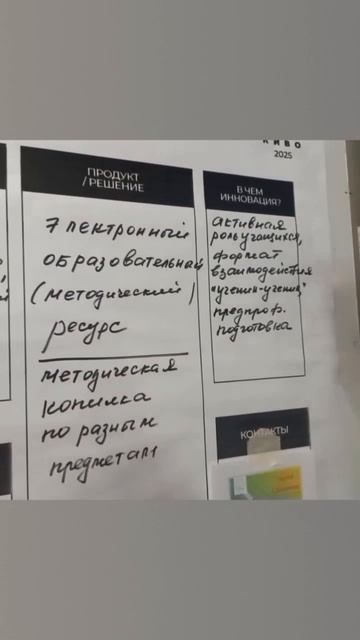 КИВО
2025
ПРОДУКТ
/РЕШЕНИЕ
Электронный
образовательный
(методический)
ресурс
методическая
копилка
по разным
предметам
В ЧЕМ
ИННОВАЦИЯ?
активная
роль учащихся,
формат
взаимодействия
"ученик-ученик"
предпроф.
подготовка
КОНТАКТЫ